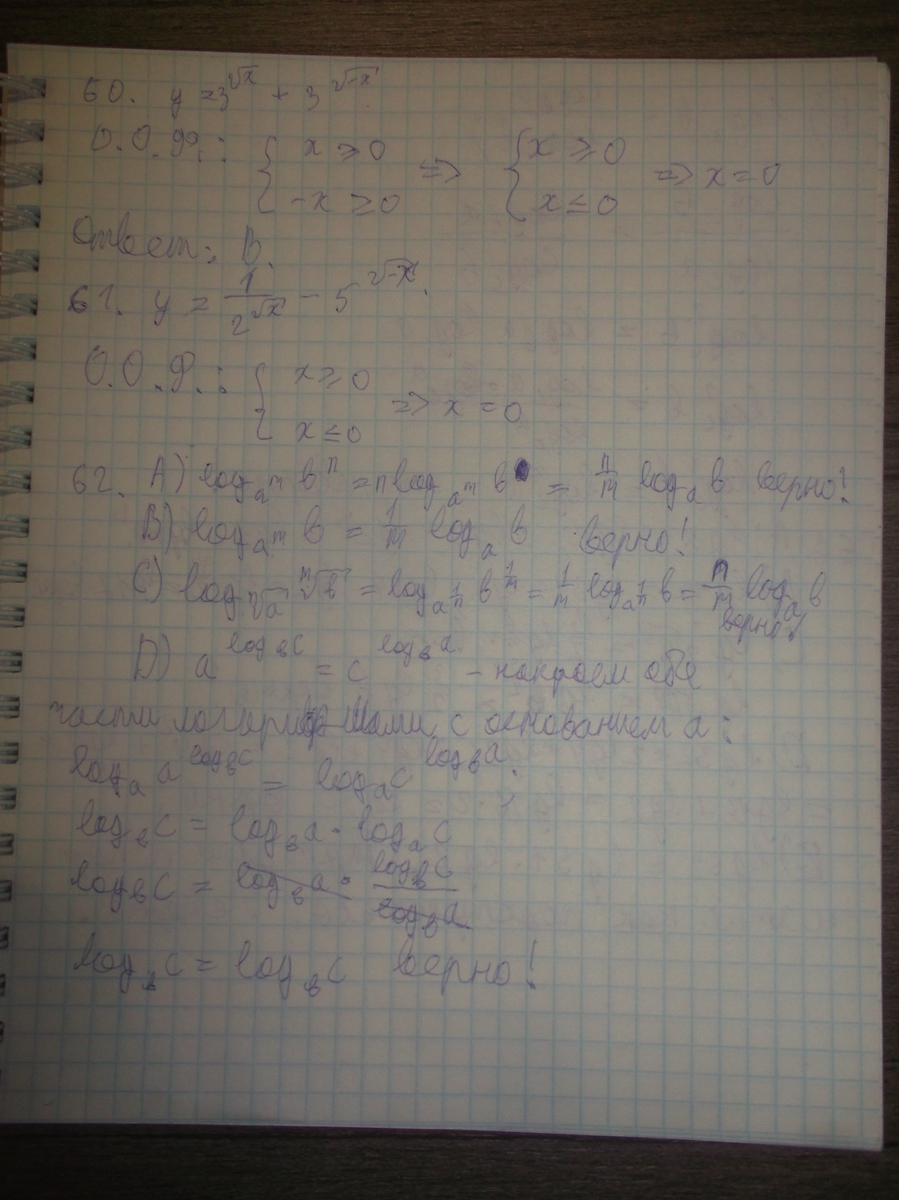 60. y = 3^√x + 3^√-x
О.О.Ф.: { x ≥ 0 => { x ≥ 0 => x = 0
-x ≥ 0 x ≤ 0
Ответ: B.
61. y = 1/2^√x - 5^√-x.
О.О.Ф.: { x ≥ 0 => x = 0
x ≤ 0
62. A) log_a^m b^n = n log_a^m b = n/m log_a b верно!
B) log_a^m b = 1/m log_a b верно!
C) log_ⁿ√a ᵐ√b = log_a^(1/n) b^(1/m) = 1/m log_a^(1/n) b = n/m log_a b
верно!
D) a^(log_b c) = c^(log_b a) - накроем обе
части логарифмами с основанием a:
log_a a^(log_b c) = log_a c^(log_b a);
log_b c = log_b a · log_a c
log_b c = log_b a · log_b c / log_b a
log_b c = log_b c верно!